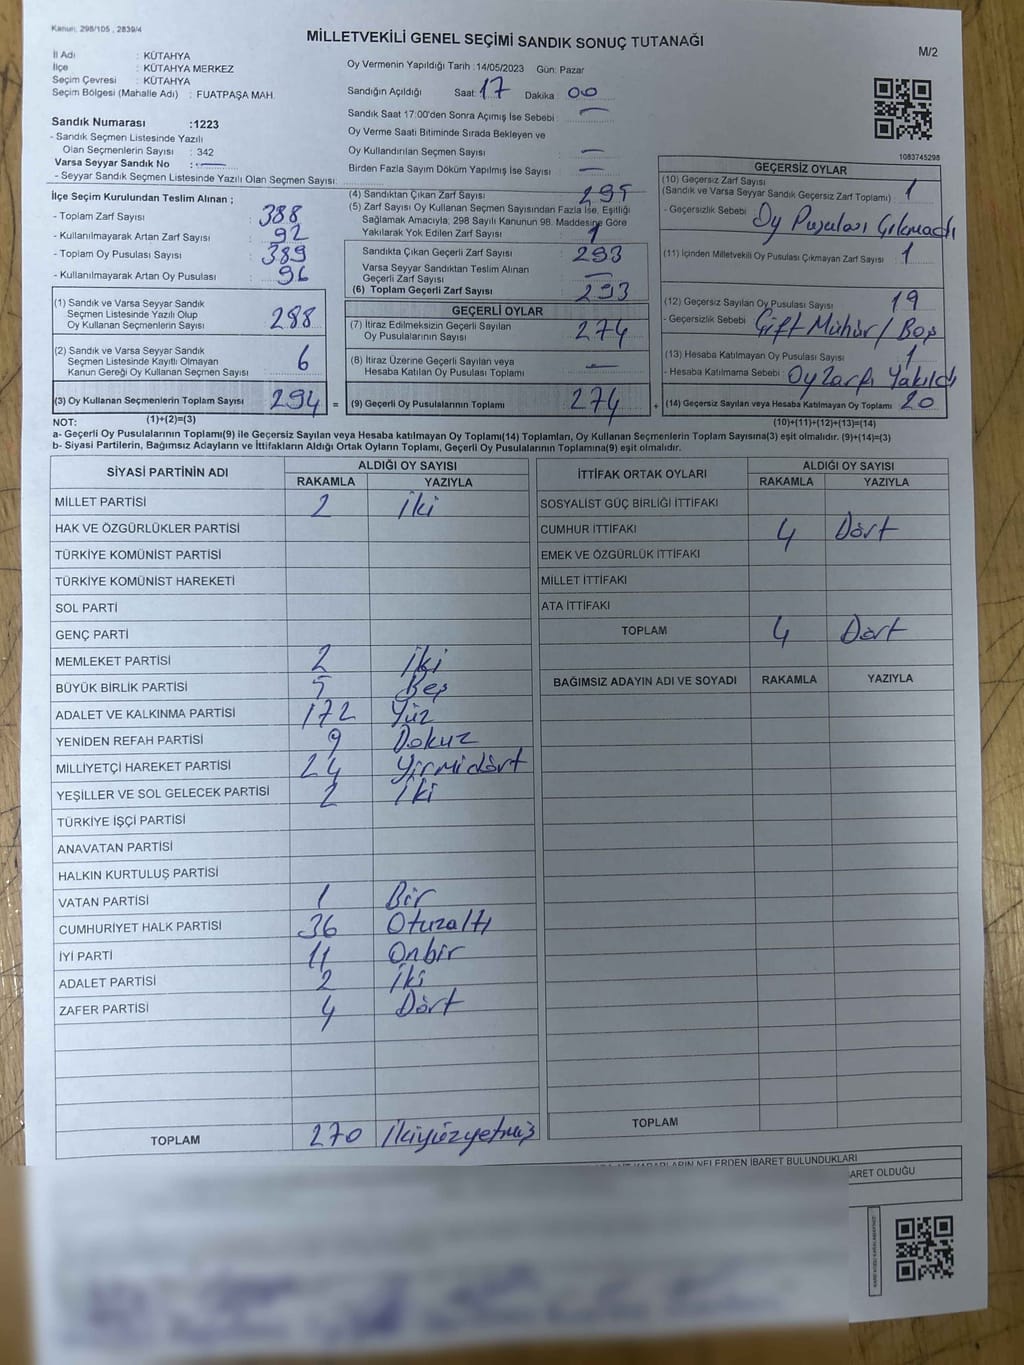 Kanun: 298/105 , 2839/4
MİLLETVEKİLİ GENEL SEÇİMİ SANDIK SONUÇ TUTANAĞI
M/2
İl Adı : KÜTAHYA
İlçe : KÜTAHYA MERKEZ
Seçim Çevresi : KÜTAHYA
Seçim Bölgesi (Mahalle Adı) : FUATPAŞA MAH.
Oy Vermenin Yapıldığı Tarih :14/05/2023 Gün: Pazar
Sandığın Açıldığı Saat: 17 Dakika 00
Sandık Saat 17:00'den Sonra Açımış İse Sebebi : —
Oy Verme Saati Bitiminde Sırada Bekleyen ve
Oy Kullandırılan Seçmen Sayısı : —
Birden Fazla Sayım Döküm Yapılmış İse Sayısı : —
Sandık Numarası :1223
- Sandık Seçmen Listesinde Yazılı
Olan Seçmenlerin Sayısı : 342
Varsa Seyyar Sandık No : —
- Seyyar Sandık Seçmen Listesinde Yazılı Olan Seçmen Sayısı:
1083745298
İlçe Seçim Kurulundan Teslim Alınan ;
- Toplam Zarf Sayısı : 388
- Kullanılmayarak Artan Zarf Sayısı : 92
- Toplam Oy Pusulası Sayısı : 389
- Kullanılmayarak Artan Oy Pusulası : 96
(1) Sandık ve Varsa Seyyar Sandık
Seçmen Listesinde Yazılı Olup
Oy Kullanan Seçmenlerin Sayısı 288
(2) Sandık ve Varsa Seyyar Sandık
Seçmen Listesinde Kayıtlı Olmayan
Kanun Gereği Oy Kullanan Seçmen Sayısı 6
(3) Oy Kullanan Seçmenlerin Toplam Sayısı 294 =
(1)+(2)=(3)
(4) Sandıktan Çıkan Zarf Sayısı : 295
(5) Zarf Sayısı Oy Kullanan Seçmen Sayısından Fazla İse, Eşitliği
Sağlamak Amacıyla; 298 Sayılı Kanunun 98. Maddesine Göre
Yakılarak Yok Edilen Zarf Sayısı : 1
Sandıkta Çıkan Geçerli Zarf Sayısı : 293
Varsa Seyyar Sandıktan Teslim Alınan
Geçerli Zarf Sayısı : —
(6) Toplam Geçerli Zarf Sayısı : 293
GEÇERLİ OYLAR
(7) İtiraz Edilmeksizin Geçerli Sayılan
Oy Pusulalarının Sayısı : 274
(8) İtiraz Üzerine Geçerli Sayılan veya
Hesaba Katılan Oy Pusulası Toplamı : —
(9) Geçerli Oy Pusulalarının Toplamı 274 +
GEÇERSİZ OYLAR
(10) Geçersiz Zarf Sayısı
(Sandık ve Varsa Seyyar Sandık Geçersiz Zarf Toplamı) : 1
- Geçersizlik Sebebi : Oy Pusulası Çıkmadı
(11) İçinden Milletvekili Oy Pusulası Çıkmayan Zarf Sayısı : 1
(12) Geçersiz Sayılan Oy Pusulası Sayısı : 19
- Geçersizlik Sebebi : Çift Mühür / Boş
(13) Hesaba Katılmayan Oy Pusulası Sayısı : 1
- Hesaba Katılmama Sebebi : Oy Zarfı Yakıldı
(14) Geçersiz Sayılan veya Hesaba Katılmayan Oy Toplamı : 20
(10)+(11)+(12)+(13)=(14)
NOT:
a- Geçerli Oy Pusulalarının Toplamı(9) ile Geçersiz Sayılan veya Hesaba katılmayan Oy Toplamı(14) Toplamları, Oy Kullanan Seçmenlerin Toplam Sayısına(3) eşit olmalıdır. (9)+(14)=(3)
b- Siyasi Partilerin, Bağımsız Adayların ve İttifakların Aldığı Ortak Oyların Toplamı, Geçerli Oy Pusulalarının Toplamına(9) eşit olmalıdır.
SİYASİ PARTİNİN ADI ALDIĞI OY SAYISI
RAKAMLA YAZIYLA
MİLLET PARTİSİ 2 İki
HAK VE ÖZGÜRLÜKLER PARTİSİ
TÜRKİYE KOMÜNİST PARTİSİ
TÜRKİYE KOMÜNİST HAREKETİ
SOL PARTİ
GENÇ PARTİ
MEMLEKET PARTİSİ 2 İki
BÜYÜK BİRLİK PARTİSİ 5 Beş
ADALET VE KALKINMA PARTİSİ 172 Yüz
YENİDEN REFAH PARTİSİ 9 Dokuz
MİLLİYETÇİ HAREKET PARTİSİ 24 Yirmidört
YEŞİLLER VE SOL GELECEK PARTİSİ 2 İki
TÜRKİYE İŞÇİ PARTİSİ
ANAVATAN PARTİSİ
HALKIN KURTULUŞ PARTİSİ
VATAN PARTİSİ 1 Bir
CUMHURİYET HALK PARTİSİ 36 Otuzaltı
İYİ PARTİ 11 Onbir
ADALET PARTİSİ 2 İki
ZAFER PARTİSİ 4 Dört
TOPLAM 270 İkiyüzyetmiş
İTTİFAK ORTAK OYLARI ALDIĞI OY SAYISI
RAKAMLA YAZIYLA
SOSYALİST GÜÇ BİRLİĞİ İTTİFAKI
CUMHUR İTTİFAKI 4 Dört
EMEK VE ÖZGÜRLÜK İTTİFAKI
MİLLET İTTİFAKI
ATA İTTİFAKI
TOPLAM 4 Dört
BAĞIMSIZ ADAYIN ADI VE SOYADI RAKAMLA YAZIYLA
TOPLAM
KARARLARIN NELERDEN İBARET BULUNDUKLARI
BARET OLDUĞU